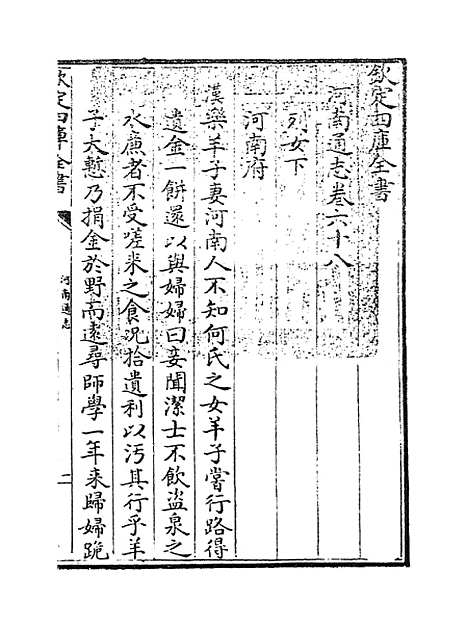 欽定四庫全書
河南通志卷六十八
列女下
河南府
漢樂羊子妻河南人不知何氏之女羊子嘗行路得
遺金一餅還以與婦婦曰妾聞潔士不飲盜泉之
水廉者不受嗟来之食况拾遺利以汚其行乎羊
子大慙乃捐金於野而遠尋師學一年来歸婦跪
欽定四庫全書
河南通志